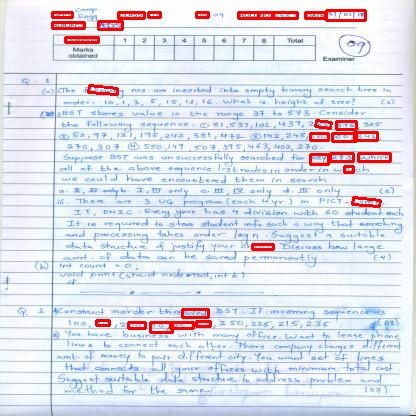 Comp.
Engg
09
1 2 3 4 5 6 7 8 Total
Marks obtained
Examiner
09
Q. 1
(a) The nos. are inserted into empty binary search tree in
order: 10, 1, 3, 5, 15, 12, 16. What is height of tree? (2)
BST stores value in the range 37 to 573. Consider
the following sequence. ① 81, 537, 102, 439, 305
② 52, 97, 121, 195, 242, 381, 472 ③ 142, 248,
270, 307 ④ 550, 149, 507, 395, 463, 402, 270.
Suppose BST was unsuccessfully searched for which
all of the above sequence list nodes in order in
we could have encountered them in search
a. II, III only b. I, III only c. III, IV only d. III only (2)
iii. There are 3 UG program (each 4 yr) in PICT-
IT, EN&C. Every year has 4 division with 60 student each
It is required to store student info such a way that searching
and processing takes order log n. Suggest a suitable
data structure & justify your Discuss how large
amt. of data can be saved permanently (4)
(b) int count = 0;
void print (struct node *root, int k)
Q. 2 Construct inorder BST. If incoming sequence is
100, 250, 225, 215, 235
You have business with many offices. Want to lease phone
lines to connect each other. Phone company charges different
amt of money to pair different city. You want set of lines
that connects all your offices with minimum total cost.
Suggest suitable data structure to address problem and
method for the same. (03)